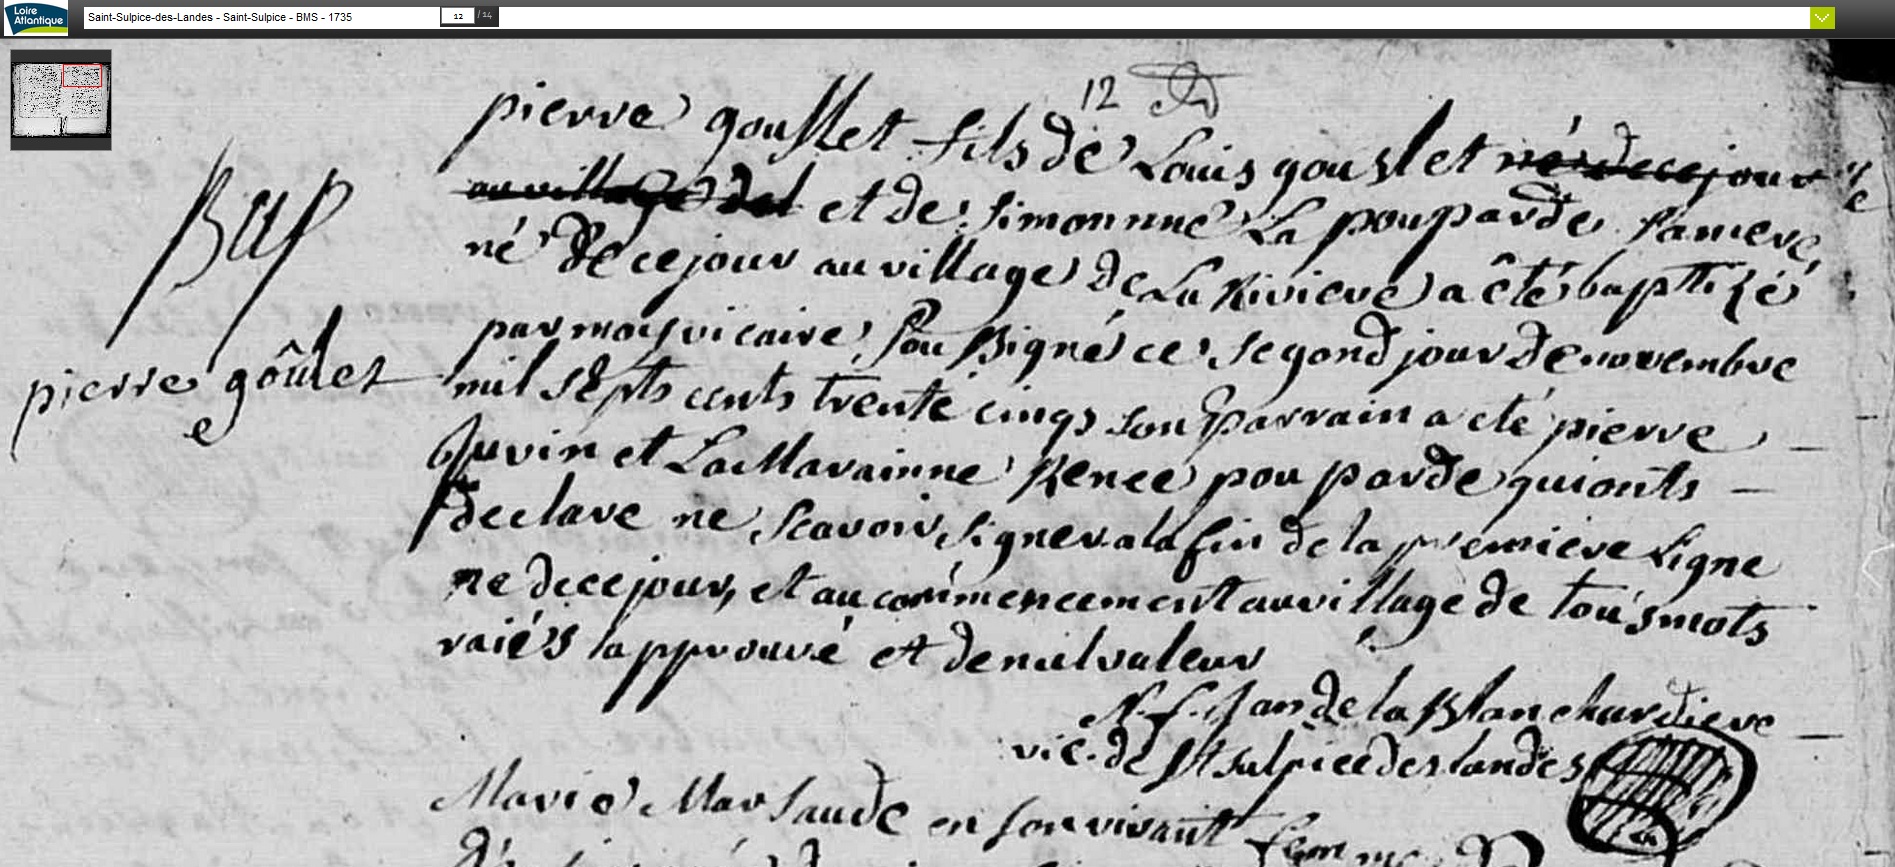 Loire
Atlantique
Saint-Sulpice-des-Landes - Saint-Sulpice - BMS - 1735
12 / 14
12
pierre gousslet fils de Louis gousslet né de ce jour
au village del et de simonnne La pouparde sa mere
né de ce jour au village de La Riviere a êté baptizé
par moy vicaire soussigné ce segond jour de novembre
mil septs cents trente cinqs son parrain a eté pierre
Juvin et La Marainne Renee pouparde qui onts
declare ne scavoir signer a la fin de la premiere Ligne
ne de ce jour, et au commencement au village de tous mots
raiés lapprouvé et de nul valeur
Bap
pierre goûlet
e
de la Blanchardiere
vic. de St sulpice des landes
Marie Marsaude en son vivant femme